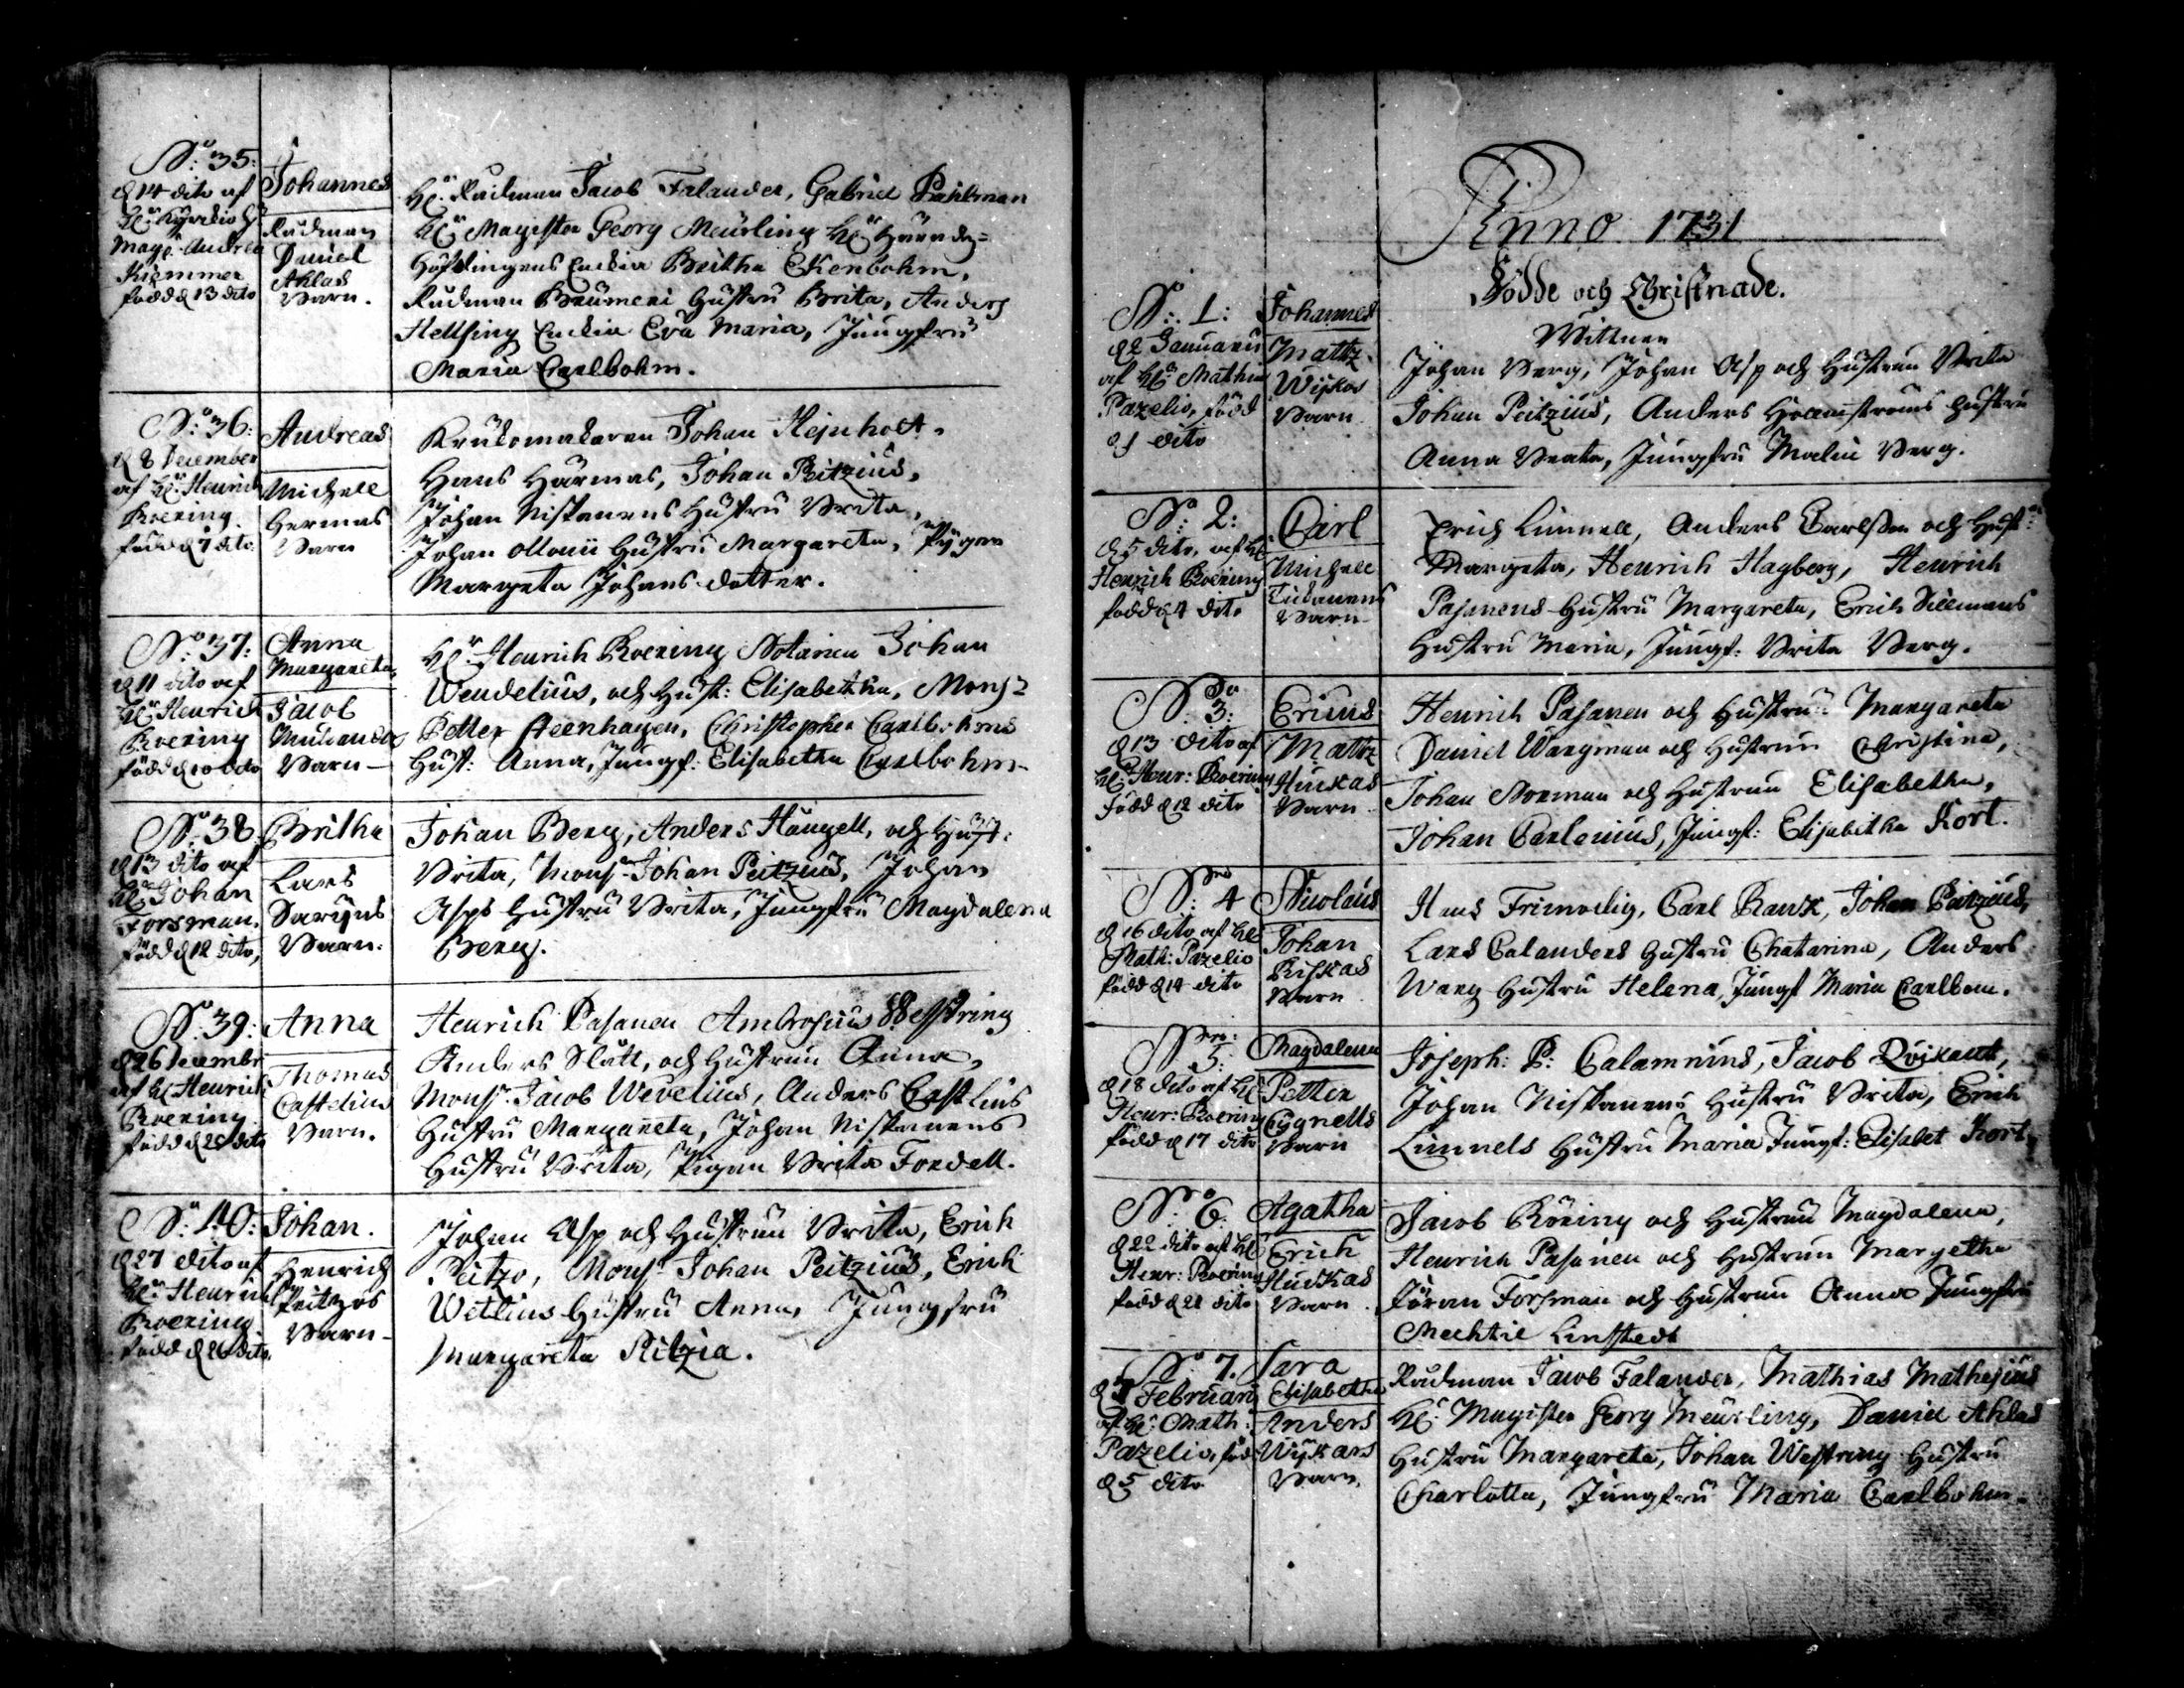 No: 35:
d 14 dito af
Hr Kyrckio H
Mag: Andrea
Kiemmer
född d 13 dito
Johannes
Rådman
Daniel
Ahlas
Barn.
Hr: Rådman Jacob Falander, Gabriel Pahlman
Hr Magister Georg Meürling Hr Härads=
höfdingens Enckia Britha Ekenbohm,
Rådman hustru Brita, Anders
Hellsing Enckia Eva Maria, Jungfru
Maria Carlbohm.
No: 36:
d 8 December
af Hr: Henrich
Roering
född d 7 dito
Andreas
Michell
Hermas
Barn
Krukomakaren Johan
Hans Härmas, Johan Peitzius,
Johan Niskanens Hustru Brita,
Johan hustru Margareta, Pigan
Margeta Johans dotter.
No: 37:
d 11 dito af
Hr Henrich
Roering
född d 10 dito
Anna
Margareta
Jacob
Barn
Hr: Henrich Roering Notarien Johan
Wendelius, och Hust: Elisabetha, Mons:
Petter Steenhagen, Christopher Carlbohms
Hust: Anna, Jungf: Elisabetha Carlbohm
No: 38
d 13 dito af
Hr Johan
Forsman,
född d 12 dito,
Britha
Lars
Barn.
Johan Berg, Anders Hångell, och Hust:
Brita, Mons: Johan Peitzius, Johan
Asps hustru Brita, Jungfru Magdalena
Berg.
No. 39:
d 26 Decembr
af Hr Henrich
Roering
född d 25 dito
Anna
Thomas
Castelius
Barn.
Henrich Pasanen Ambrosius Wesstring
Anders Slått, och Hustrun Anna,
Mons: Jacob Wevelius, Anders Castlius
Hustru Margareta, Johan Niskanens
Hustru Brita, Pigan Brita Fordell.
No: 40:
d 27 dito af
Hr Henrich
Roering
född d 26 dito.
Johan.
Henrich
Peitzos
Barn
Johan Asp och Hustrun Brita, Erich
Peitzo, Mons: Johan Peitzius, Erich
Wetlius Hustru Anna, Jungfru
Margareta Peitzia.
Anno 1731
Födde och Christnade.
Wittnen
No: 1:
d 2 Januarii
af Hr Mathia
Pazelio, född
d 1 dito
Johannes
Mattz
Wijkas
Barn
Johan Berg, Johan Asp och Hustrun Brita
Johan Peitzius, Anders hustru
Anna Beata, Jungfru Malin Berg.
No: 2:
d 5 dito, af Hr
Henrich Roering
född d 4 dito
Carl
Michell
Tickanens
Barn
Erich Linnell, Anders Carlsson och Hust:
Margeta, Henrich Hagberg, Henrich
Pasanens Hustru Margareta, Erich
Hustru Maria, Jungf: Brita Berg.
No 3:
d 13 dito af
Hr: Henr: Roering
född d 12 dito
Ericus
Mattz
Huckas
Barn
Henrich Pasanen och Hustrun Margareta
Daniel Wargman och Hustrun Christina,
Johan Norman och Hustrun Elisabetha,
Johan Carlenius, Jungf: Elisabetha Kort.
No: 4
d 16 dito af Hr
Math: Pazelio
född d 14 dito
Nicolaus
Johan
Riskas
Barn
Hans Frimodig, Carl Rank, Johan Peitzius,
Lars Calanders Hustru Chatarina, Anders
Wang Hustru Helena, Jungf Maria Carlbom.
No 5:
d 18 dito af Hr
Henr: Roering
född d 17 dito
Magdalena
Petter
Cygnells
Barn
Joseph: P: Calamnius, Jacob Qvikant,
Johan Niskanens Hustru Brita, Erich
Linnels Hustru Maria Jungf: Elisabet Kort,
No 6:
d 22 dito af Hr
Henr: Roering
född d 21 dito
Agatha
Erich
Huckas
Barn
Jacob Röring och Hustrun Magdalena,
Henrich Pasanen och Hustrun Margetha
Jöran Forsman och Hustrun Anna Jungfru
Mechtil Linstedt
No 7.
d 7 Februarii
af Hr: Math:
Pazelio, född
d 5 dito
Sara
Elisabetha
Anders
Wijkars
Barn.
Rådman Jacob Falander, Mathias Mathesius
Hr: Magister Georg Meürling, Daniel Ahlas
Hustru Margareta, Johan Westring Hustru
Charlotta, Jungfru Maria Carlbohm.